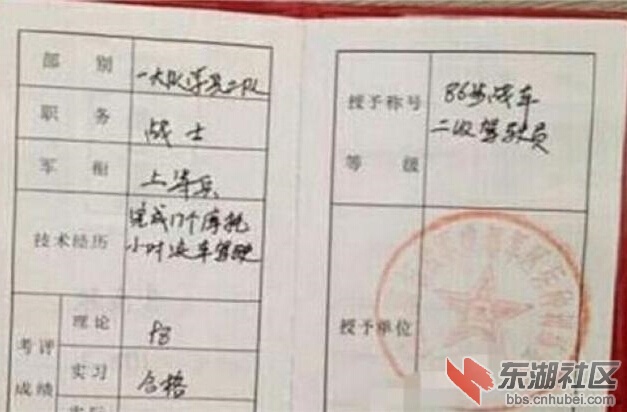 部别
一大队学员二队
职务
战士
军衔
上等兵
技术经历
完成17个摩托
小时该车驾驶
考评
成绩
理论
93
实习
合格
授予称号
86步战车
二级驾驶员
等级
授予单位
东湖社区
bbs.cnhubei.com